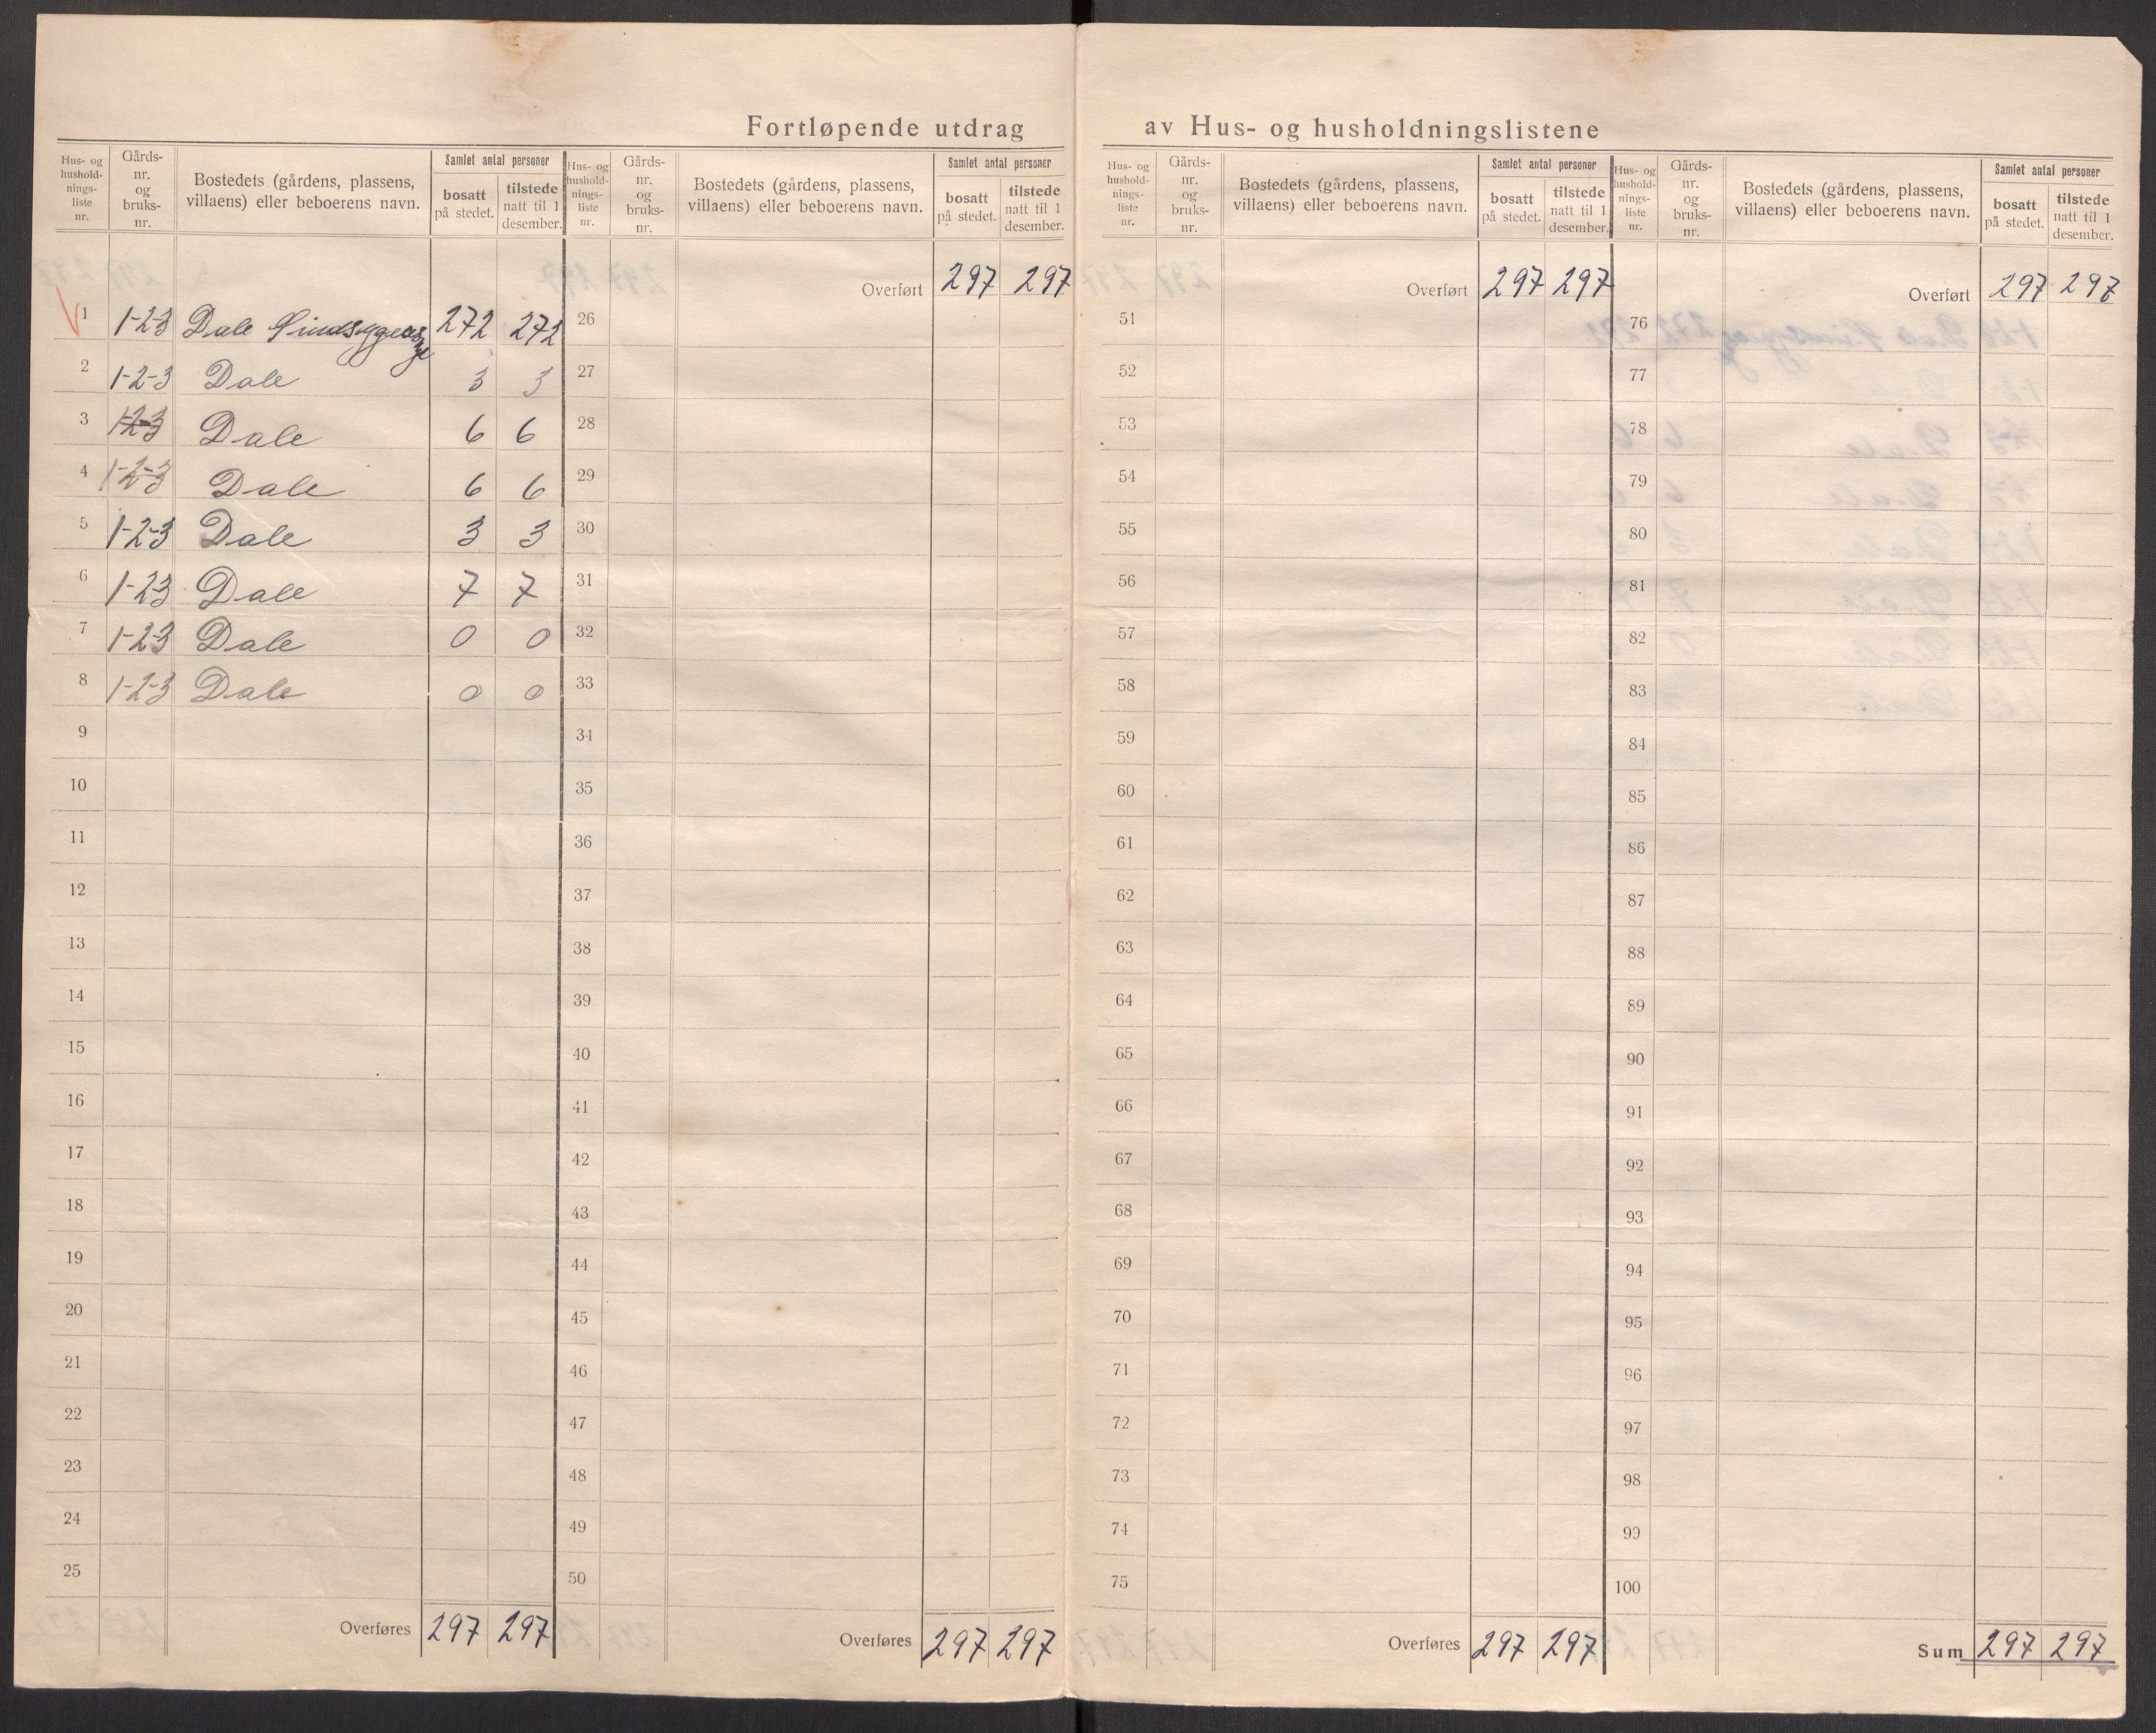 Fortløpende utdrag av Hus- og husholdningslistene
Hus- og husholdningsliste nr. | Gårds- nr. og bruks- nr. | Bostedets (gårdens, plassens, villaens) eller beboerens navn. | Samlet antal personer | bosatt på stedet. | tilstede natt til 1 desember.
1 | 1-23 | Dale Sindssygeasyl | 272 | 272
2 | 1-2-3 | Dale | 3 | 3
3 | 1-2-3 | Dale | 6 | 6
4 | 1-2-3 | Dale | 6 | 6
5 | 1-2-3 | Dale | 3 | 3
6 | 1-23 | Dale | 7 | 7
7 | 1-23 | Dale | 0 | 0
8 | 1-2-3 | Dale | 0 | 0
9
10
11
12
13
14
15
16
17
18
19
20
21
22
23
24
25
Overføres 297 297
Hus- og husholdningsliste nr. | Gårds- nr. og bruks- nr. | Bostedets (gårdens, plassens, villaens) eller beboerens navn. | Samlet antal personer | bosatt på stedet. | tilstede natt til 1 desember.
Overført 297 297
26
27
28
29
30
31
32
33
34
35
36
37
38
39
40
41
42
43
44
45
46
47
48
49
50
Overføres 297 297
Hus- og husholdningsliste nr. | Gårds- nr. og bruks- nr. | Bostedets (gårdens, plassens, villaens) eller beboerens navn. | Samlet antal personer | bosatt på stedet. | tilstede natt til 1 desember.
Overført 297 297
51
52
53
54
55
56
57
58
59
60
61
62
63
64
65
66
67
68
69
70
71
72
73
74
75
Overføres 297 297
Hus- og husholdningsliste nr. | Gårds- nr. og bruks- nr. | Bostedets (gårdens, plassens, villaens) eller beboerens navn. | Samlet antal personer | bosatt på stedet. | tilstede natt til 1 desember.
Overført 297 297
76
77
78
79
80
81
82
83
84
85
86
87
88
89
90
91
92
93
94
95
96
97
98
99
100
Sum 297 297